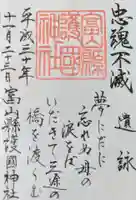 忠魂不滅
遺詠
夢にだに
忘れぬ母の
涙をば
いだきて三途の
橋を渡らむ
富山縣
護國
神社
平成三十年
富山縣護國神社